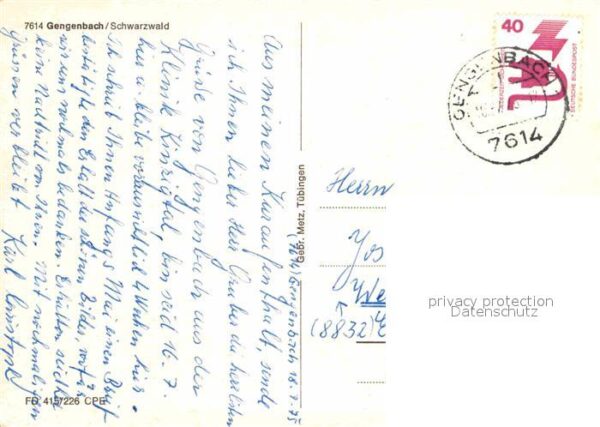 7614 Gengenbach/Schwarzwald
Aus meinem Kuraufenthalt, sende
ich Ihnen lieber Herr Gruber die herzlichsten
Grüße von Gengenbach aus der
Klinik Kinzigtal, bin seid 16. 7.
hier u. bleibe voraussichtlich 4 Wochen hier.
Ich schrieb Ihnen Anfangs Mai einen Brief
bestätigte den Erhalt der schönen Bilder, wofür
wir uns nochmals bedanken. Erhielten seither
keine Nachricht von Ihnen. Mit nochmaligen
Grüssen verbleibt Karl
(7614) Gengenbach 18.7.75
Gebr. Metz, Tübingen
FD 415/226 CPE
40
DEUTSCHE BUNDESPOST
GENGENBACH
7614
Herrn
Jos
We
(8832)
privacy protection
Datenschutz